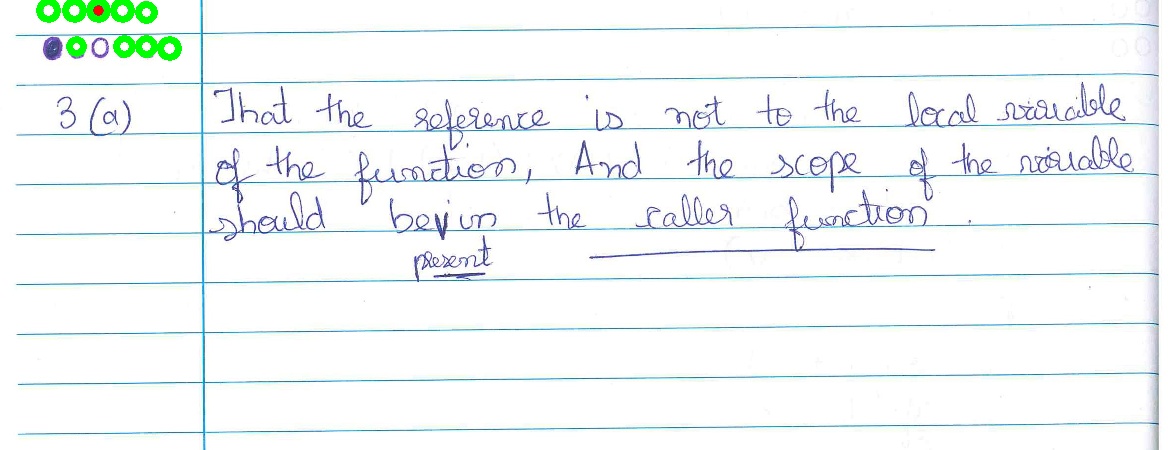 3 (a) That the reference is not to the local variable
of the function, And the scope of the variable
should be present in the caller function.